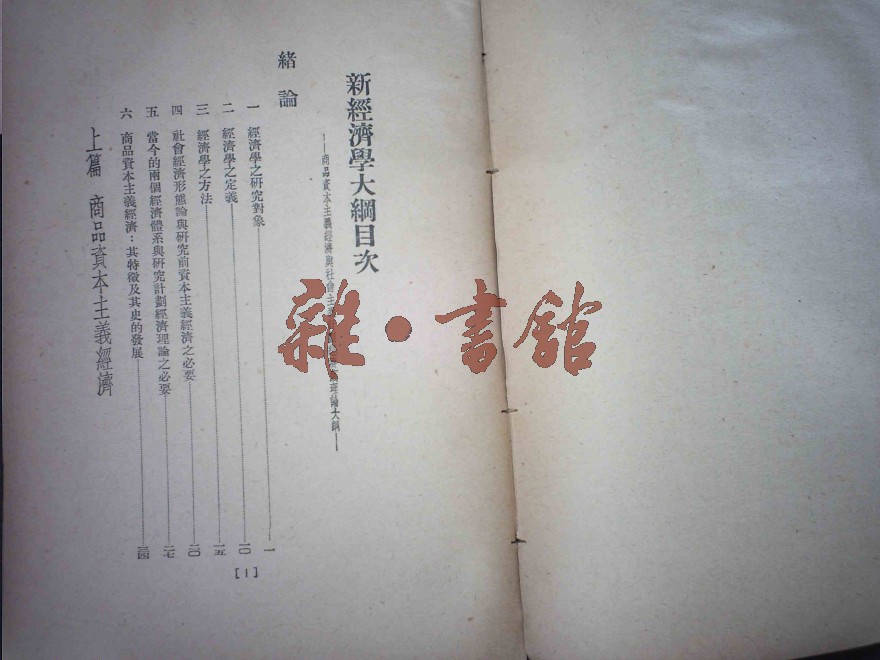 新經濟學大綱目次
——商品資本主義經濟與社會主
理論大綱——
緒論
一 經濟學之研究對象 一
二 經濟學之定義 一〇
三 經濟學之方法 一五
四 社會經濟形態論與研究前資本主義經濟之必要 二〇
五 當今的兩個經濟體系與研究計劃經濟理論之必要 二七
六 商品資本主義經濟：其特徵及其史的發展
上篇 商品資本主義經濟
[1]
雜·書館